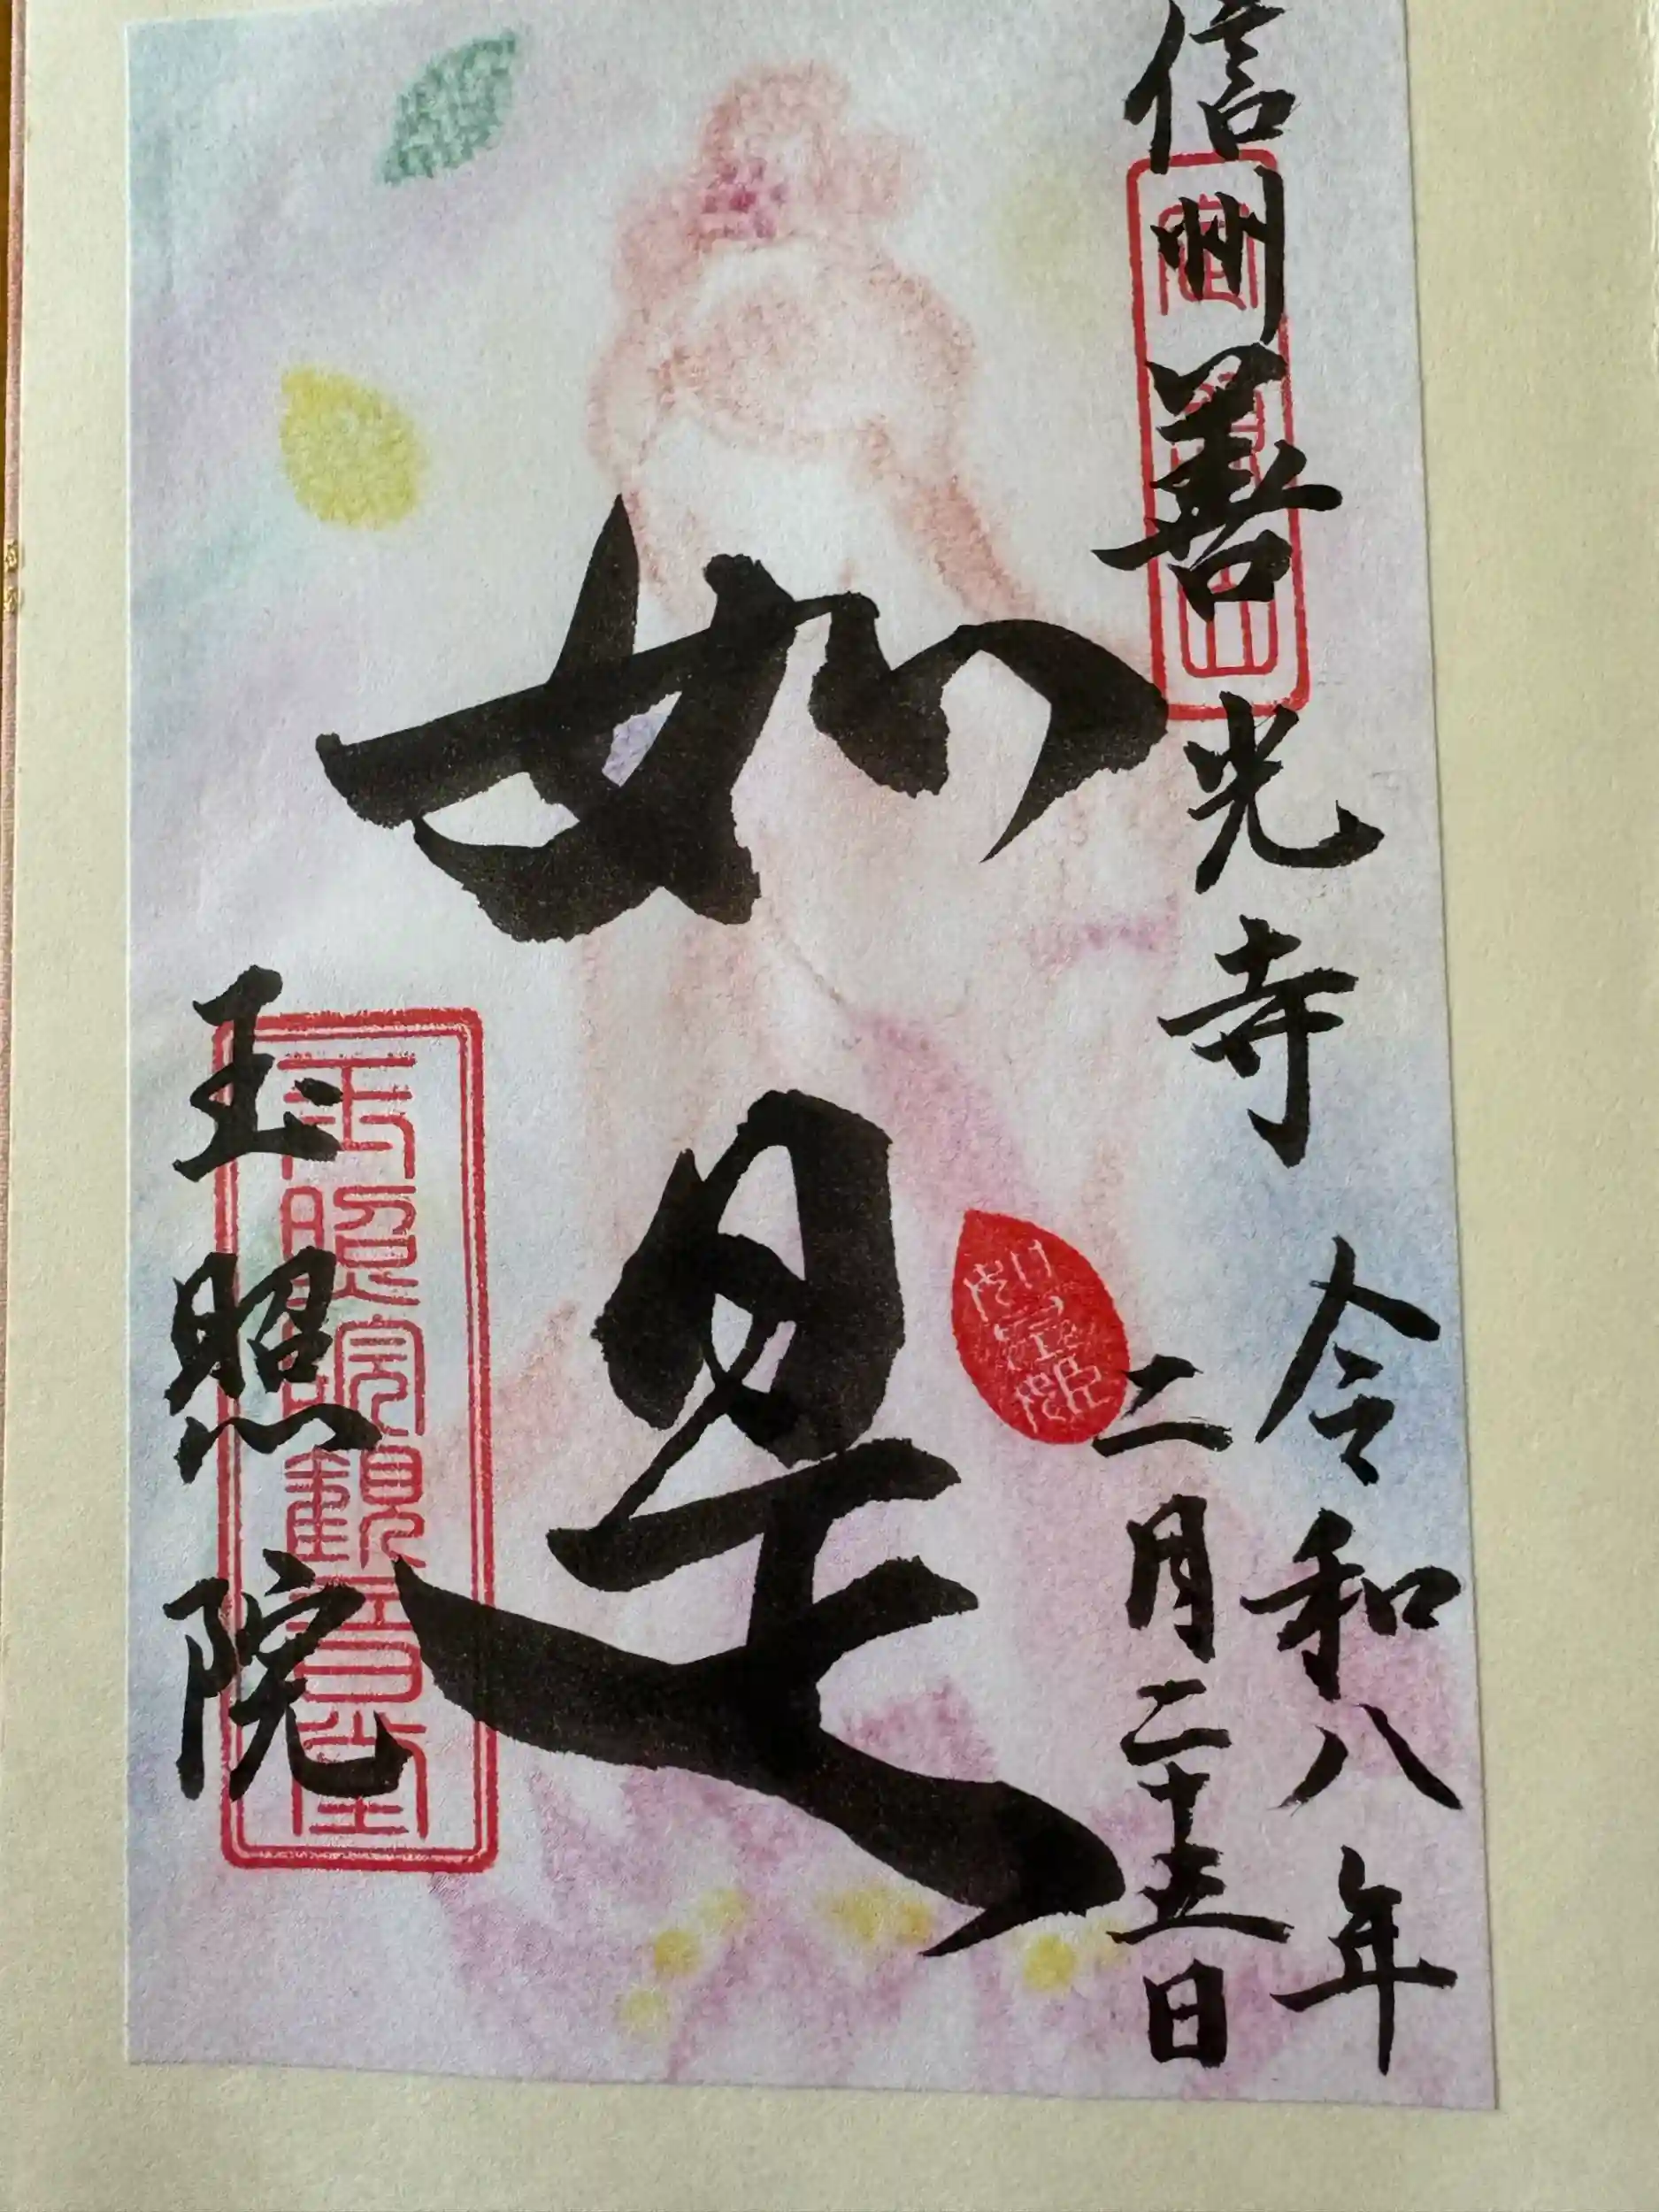 信州善光寺
令和八年
二月二十五日
如是
玉照院
玉照院観音堂